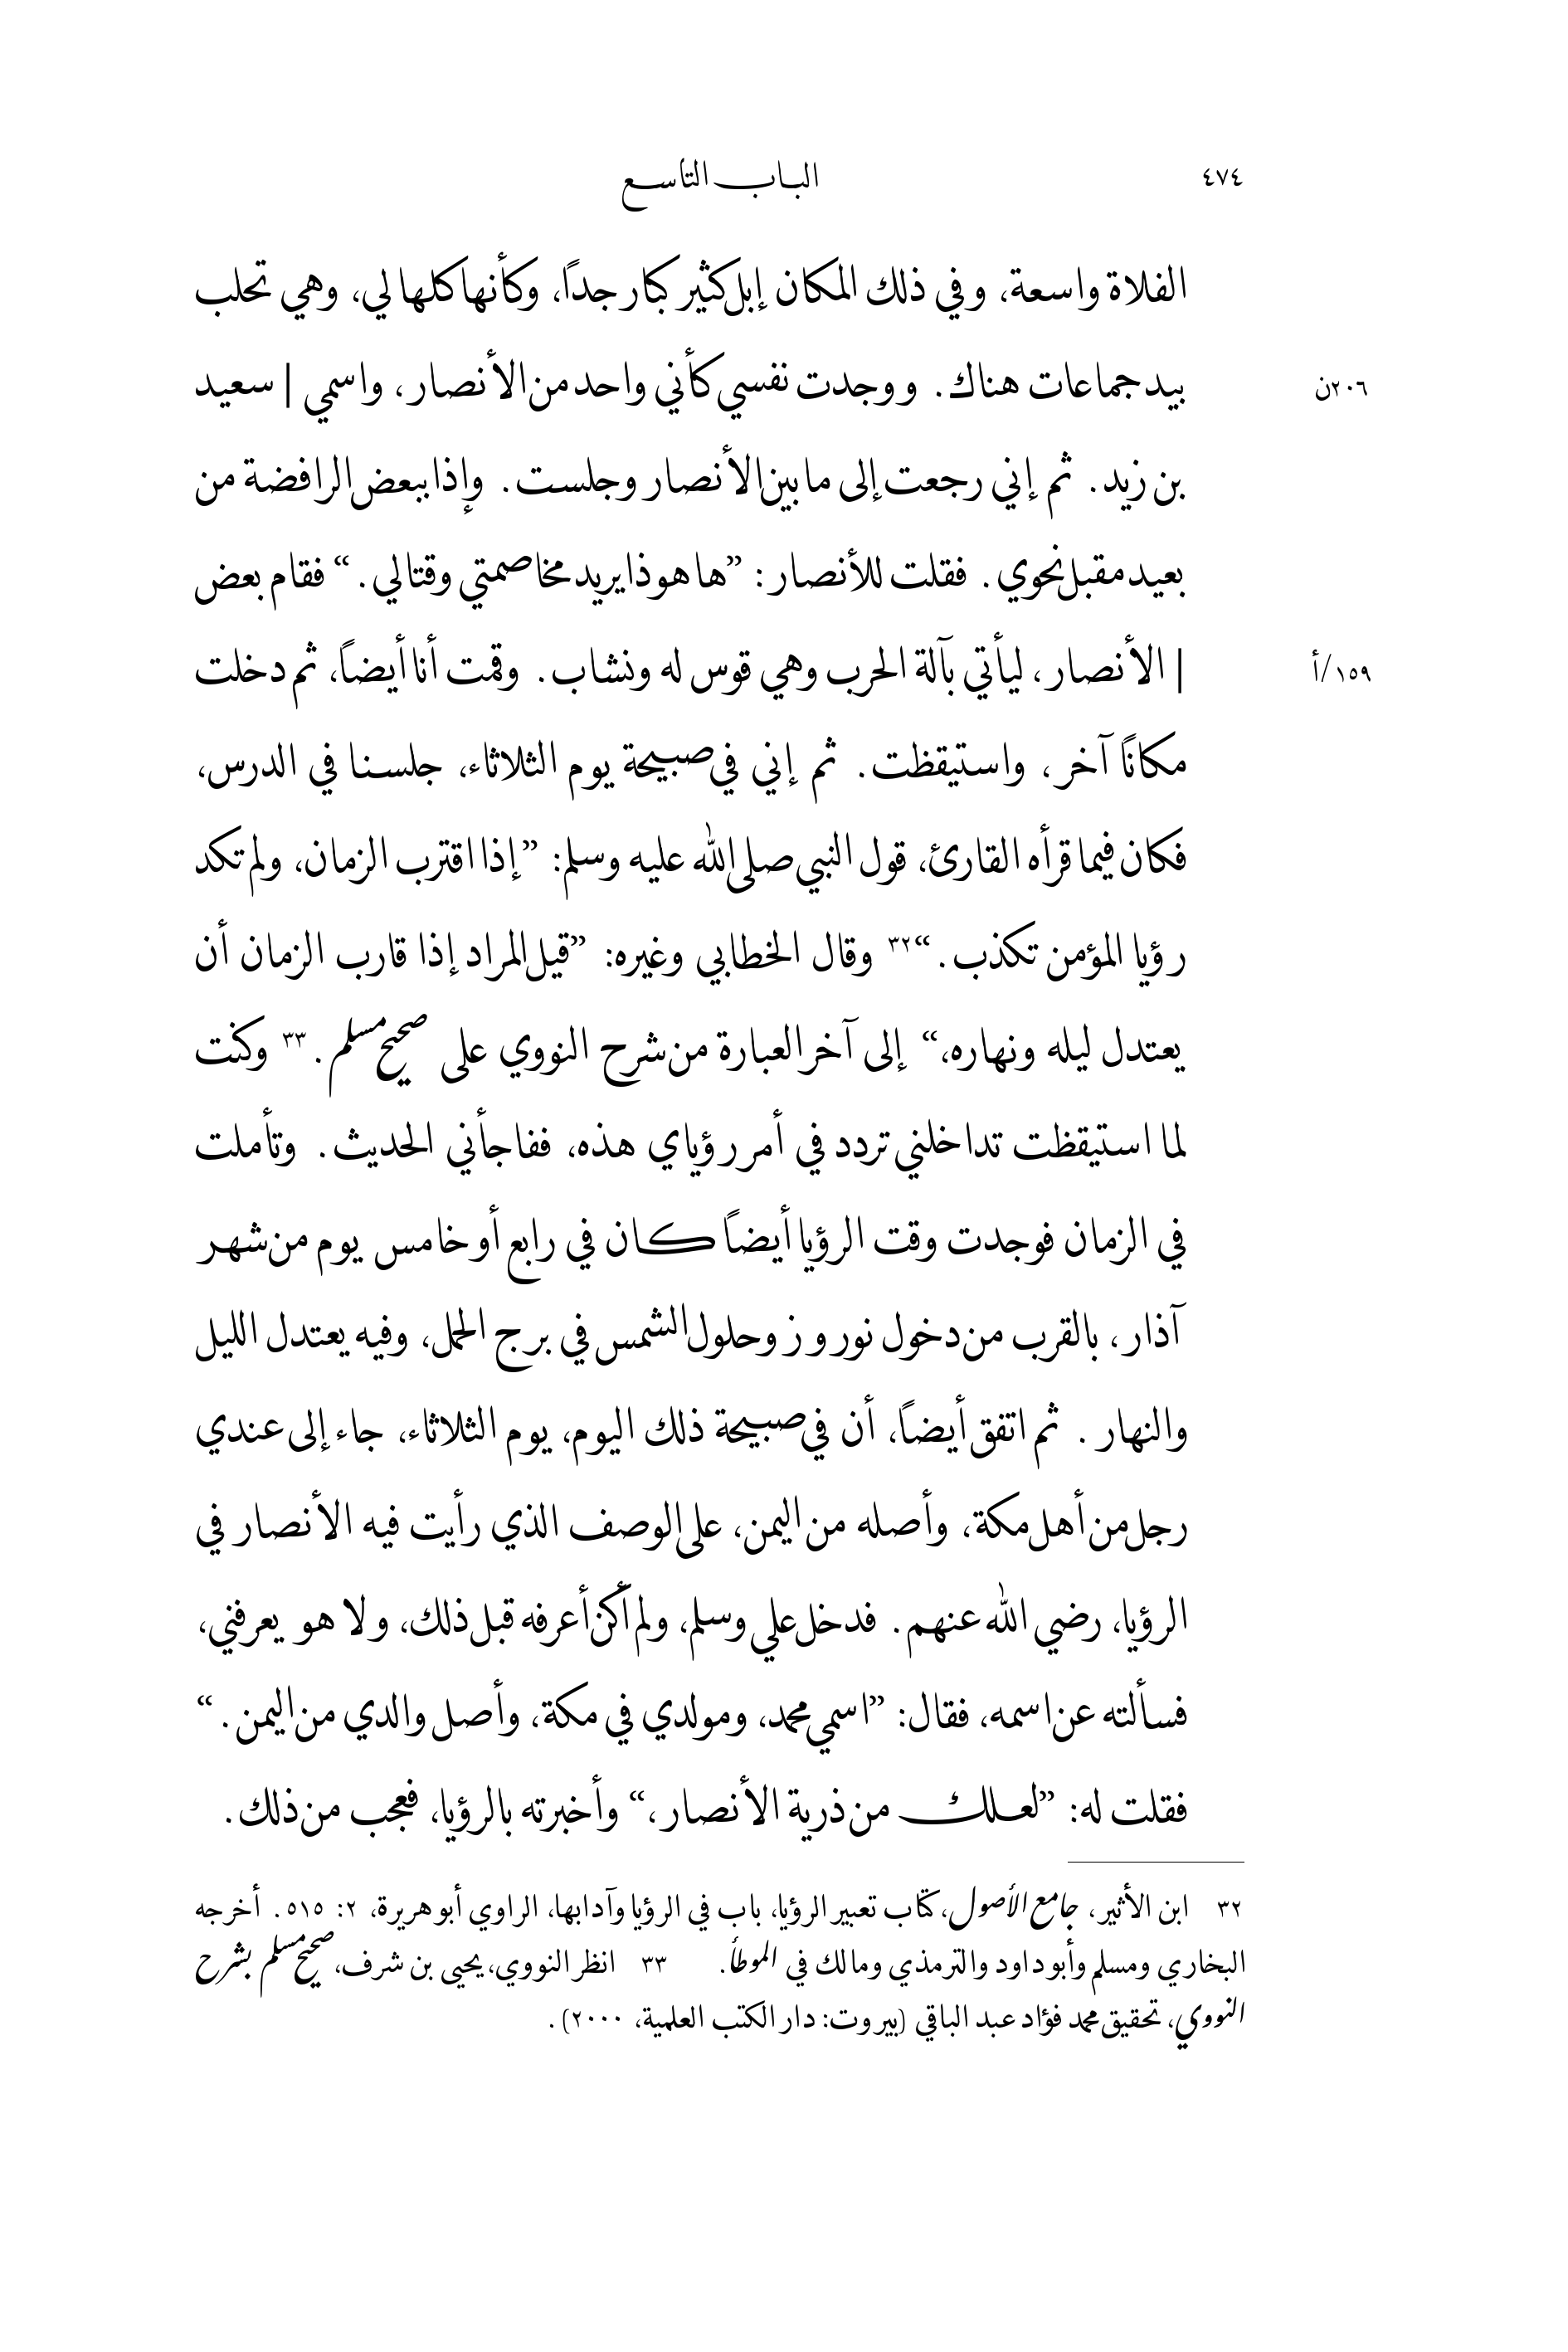 ٤٧٤
الباب التاسع
الفلاة واسعة، وفي ذلك المكان إبل كثير كبار جداً، وكأنها كلها لي، وهي تحلب
بيد جماعات هناك. ووجدت نفسي كأني واحد من الأنصار، واسمي | سعيد
٢٠٦ن
بن زيد. ثم إني رجعت إلى ما بين الأنصار وجلست. وإذا ببعض الرافضة من
بعيد مقبل نحوي. فقلت للأنصار: ”ها هو ذا يريد مخاصمتي وقتالي.“ فقام بعض
| الأنصار، ليأتي بآلة الحرب وهي قوس له ونشاب. وقمت أنا أيضاً، ثم دخلت
١٥٩/أ
مكانًا آخر، واستيقظت. ثم إني في صبيحة يوم الثلاثاء، جلسنا في الدرس،
فكان فيما قرأه القارئ، قول النبي صلى الله عليه وسلم: ”إذا اقترب الزمان، ولم تكد
رؤيا المؤمن تكذب.“٣٢ وقال الخطابي وغيره: ”قيل المراد إذا قارب الزمان أن
يعتدل ليله ونهاره،“ إلى آخر العبارة من شرح النووي على صحيح مسلم.٣٣ وكنت
لما استيقظت تداخلني تردد في أمر رؤياي هذه، ففاجأني الحديث. وتأملت
في الزمان فوجدت وقت الرؤيا أيضاً كان في رابع أو خامس يوم من شهر
آذار، بالقرب من دخول نوروز وحلول الشمس في برج الحمل، وفيه يعتدل الليل
والنهار. ثم اتفق أيضاً، أن في صبيحة ذلك اليوم، يوم الثلاثاء، جاء إلى عندي
رجل من أهل مكة، وأصله من اليمن، على الوصف الذي رأيت فيه الأنصار في
الرؤيا، رضي الله عنهم. فدخل علي وسلم، ولم أكن أعرفه قبل ذلك، ولا هو يعرفني،
فسألته عن اسمه، فقال: ”اسمي محمد، ومولدي في مكة، وأصل والدي من اليمن.“
فقلت له: ”لعلك من ذرية الأنصار،“ وأخبرته بالرؤيا، فعجب من ذلك.
٣٢ ابن الأثير، جامع الأصول، كتاب تعبير الرؤيا، باب في الرؤيا وآدابها، الراوي أبو هريرة، ٢: ٥١٥. أخرجه
البخاري ومسلم وأبو داود والترمذي ومالك في الموطأ. ٣٣ انظر النووي، يحيى بن شرف، صحيح مسلم بشرح
النووي، تحقيق محمد فؤاد عبد الباقي (بيروت: دار الكتب العلمية، ٢٠٠٠).